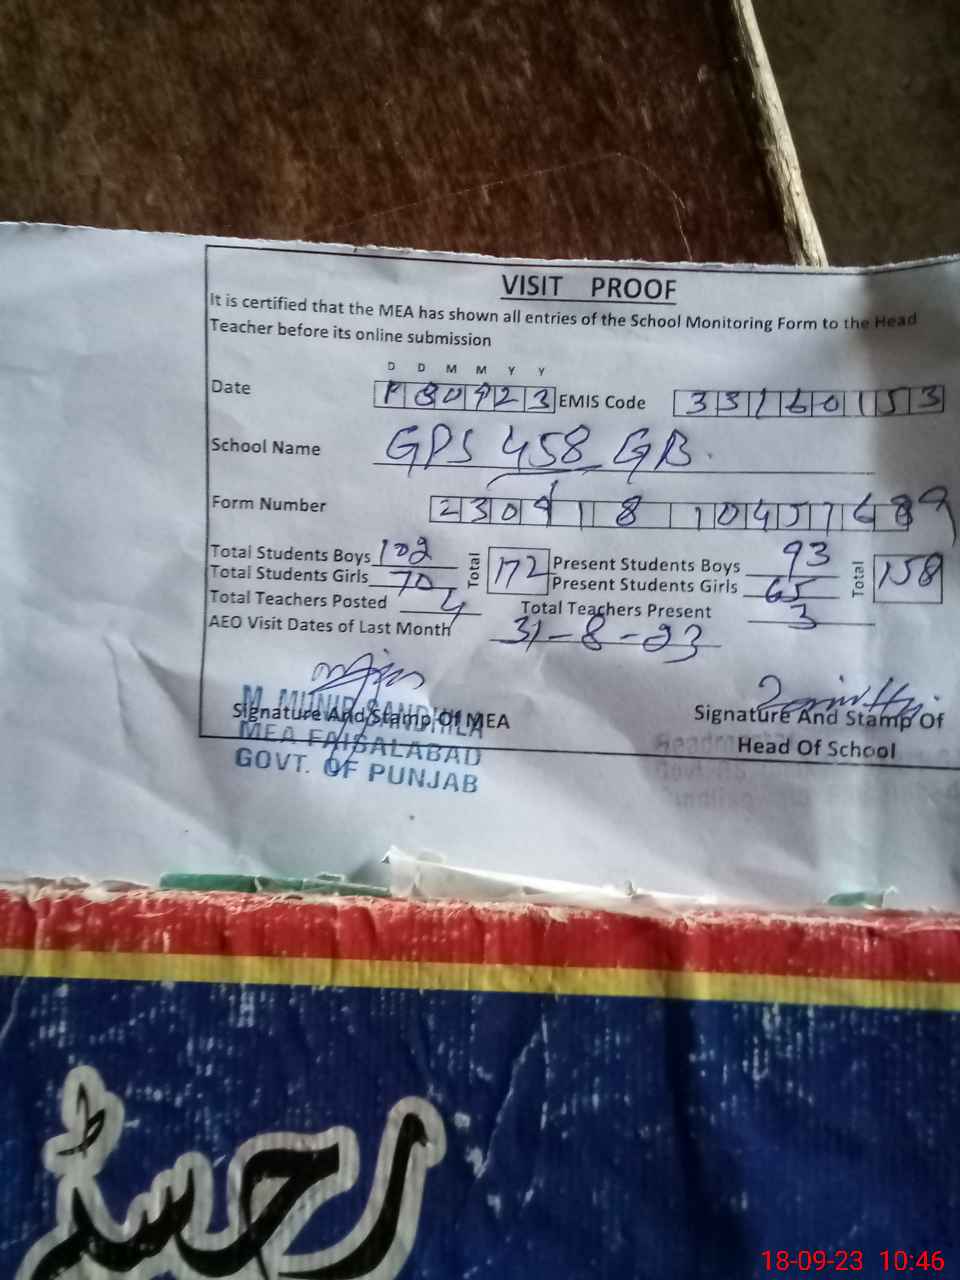 VISIT PROOF
It is certified that the MEA has shown all entries of the School Monitoring Form to the Head
Teacher before its online submission
D D M M Y Y
Date 180923 EMIS Code 33160153
School Name GPS 458 GB.
Form Number
Total Students Boys 102 Total 172 Present Students Boys 93 Total 158
Total Students Girls 70 Present Students Girls 65
Total Teachers Posted 4 Total Teachers Present 3
AEO Visit Dates of Last Month 31-8-23
Signature And Stamp Of MEA
M. MUNIR SANDHILA
MEA FAISALABAD
GOVT. OF PUNJAB
Signature And Stamp Of
Head Of School
رجسٹر
18-09-23 10:46